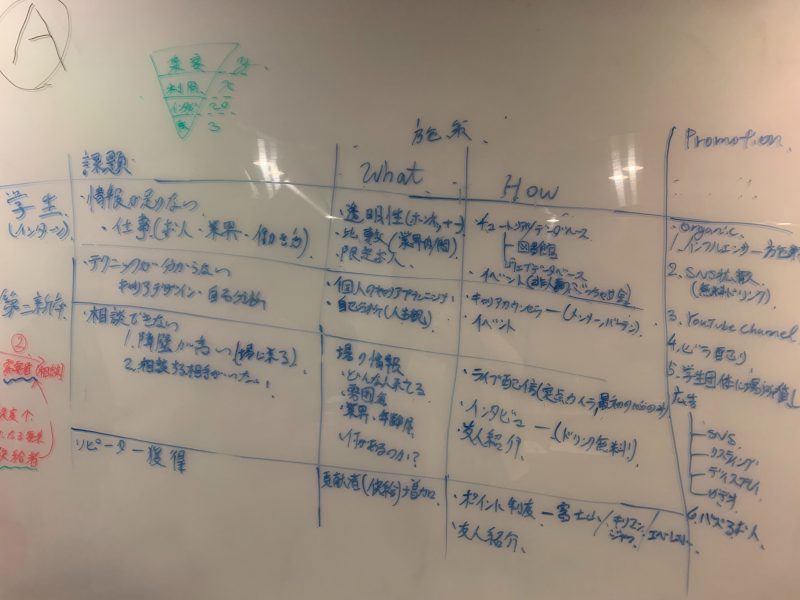 A
集客
利用
3
施策
課題
What
How
Promotion
学生
(インターン)
・情報が足りない
・仕事(求人・業界・働き方)
・透明性(ホンネトーク)
・比較(業界内個)
限定求人
・チュートリアル/データベース
図書館
ウェブデータベース
・イベント
・organic
インフルエンサー
2. SNS拡散
(無料ドリンク)
3. YouTube channel
4. ビラ配り
5. 学生団体に場所貸し
広告
SNS
リスティング
ディスプレイ
ビデオ
6. バズる求人
第二新卒
・テクニックが分からない
キャリアデザイン・自己分析
・個人のキャリアプランニング
・自己分析(人生観)
・キャリアカウンセラー(メンター
・イベント
・相談できない
1. 障壁が高い(場に来る)
2. 相談する相手がいない
場の情報
・どんな人来てる
・雰囲気
・業界・年齢層
・何があるのか?
・ライブ配信(定点カメラ
・インタビュー(ドリンク無料)
・友人紹介
②
供給者
リピーター獲得
貢献者(供給)増加
・ポイント制度ー富士山/キリマンジャロ/エベレスト
・友人紹介